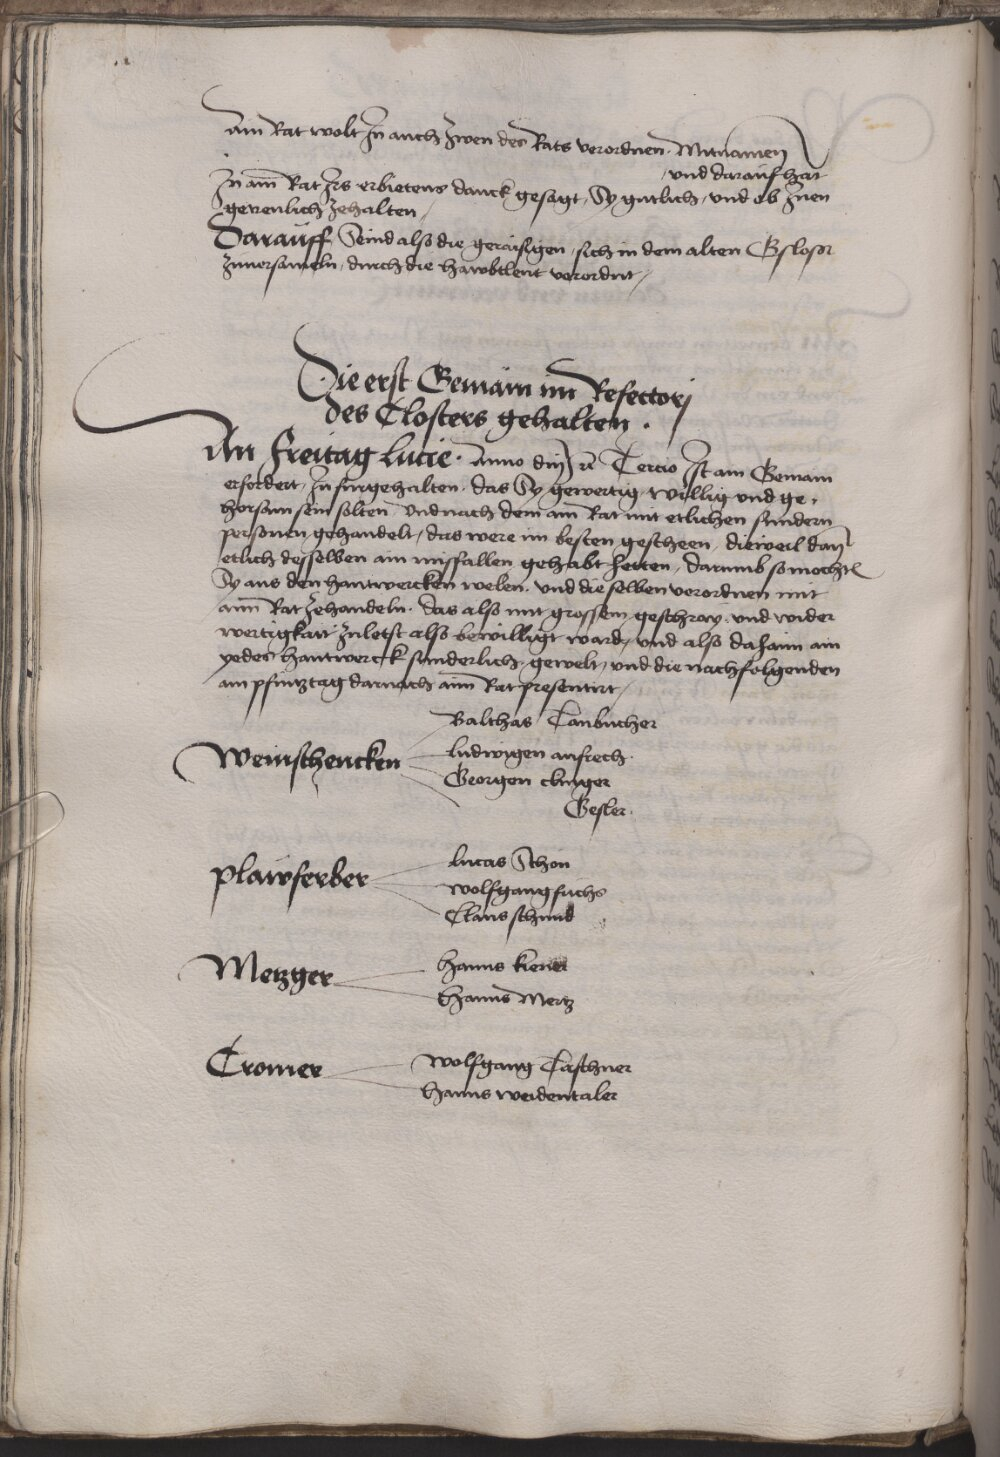 Ain Rat wolt In auch zwen des Rats verordnen. Mitnamen
/ und darauf hat
In aim Rat Irs erbietens danck gesagt, Sy gutlich, und ob Inen
gevenlich zehalten /
Darauff Seind also die geraisigen, sich in dem alten Gsloss
zuuersameln, durch die hawbtleut verordnt /
Die erst Gemain im Refectorj
des Closters gehalten.
An freitag lucie. Anno dnj rc Tercio Ist ain Gemain
erfordert, In furgehalten. das Sy gewertig, willig und ge,
horsam sein solten und nach dem ain Rat mit etlichen sundern
personen gehandelt, das were im besten gescheen, dieweil dan
etlich desselben ain misfallen gehabt hetten, darumb so mocht
Sy aus den hantwercken welen. und die selben verordnen mit
aim Rat zehandeln. das also mit grossem geschray. und wider
wertigkait zuletst also bewilligt ward, und also dahaim ain
yedes hantwerck sunderlich gewelt, und die nachfolgenden
am pfintztag darnach aim Rat presentirt /
Balthas Taubucher
Weinschencken ludwigen
Georgen
Gesler.
lucas Schon
plawferber wolfgang fuchs
Claus schmid
Metzger hanns
hanns Mertz
Cromer wolfgang Taschner
hanns weidentaler